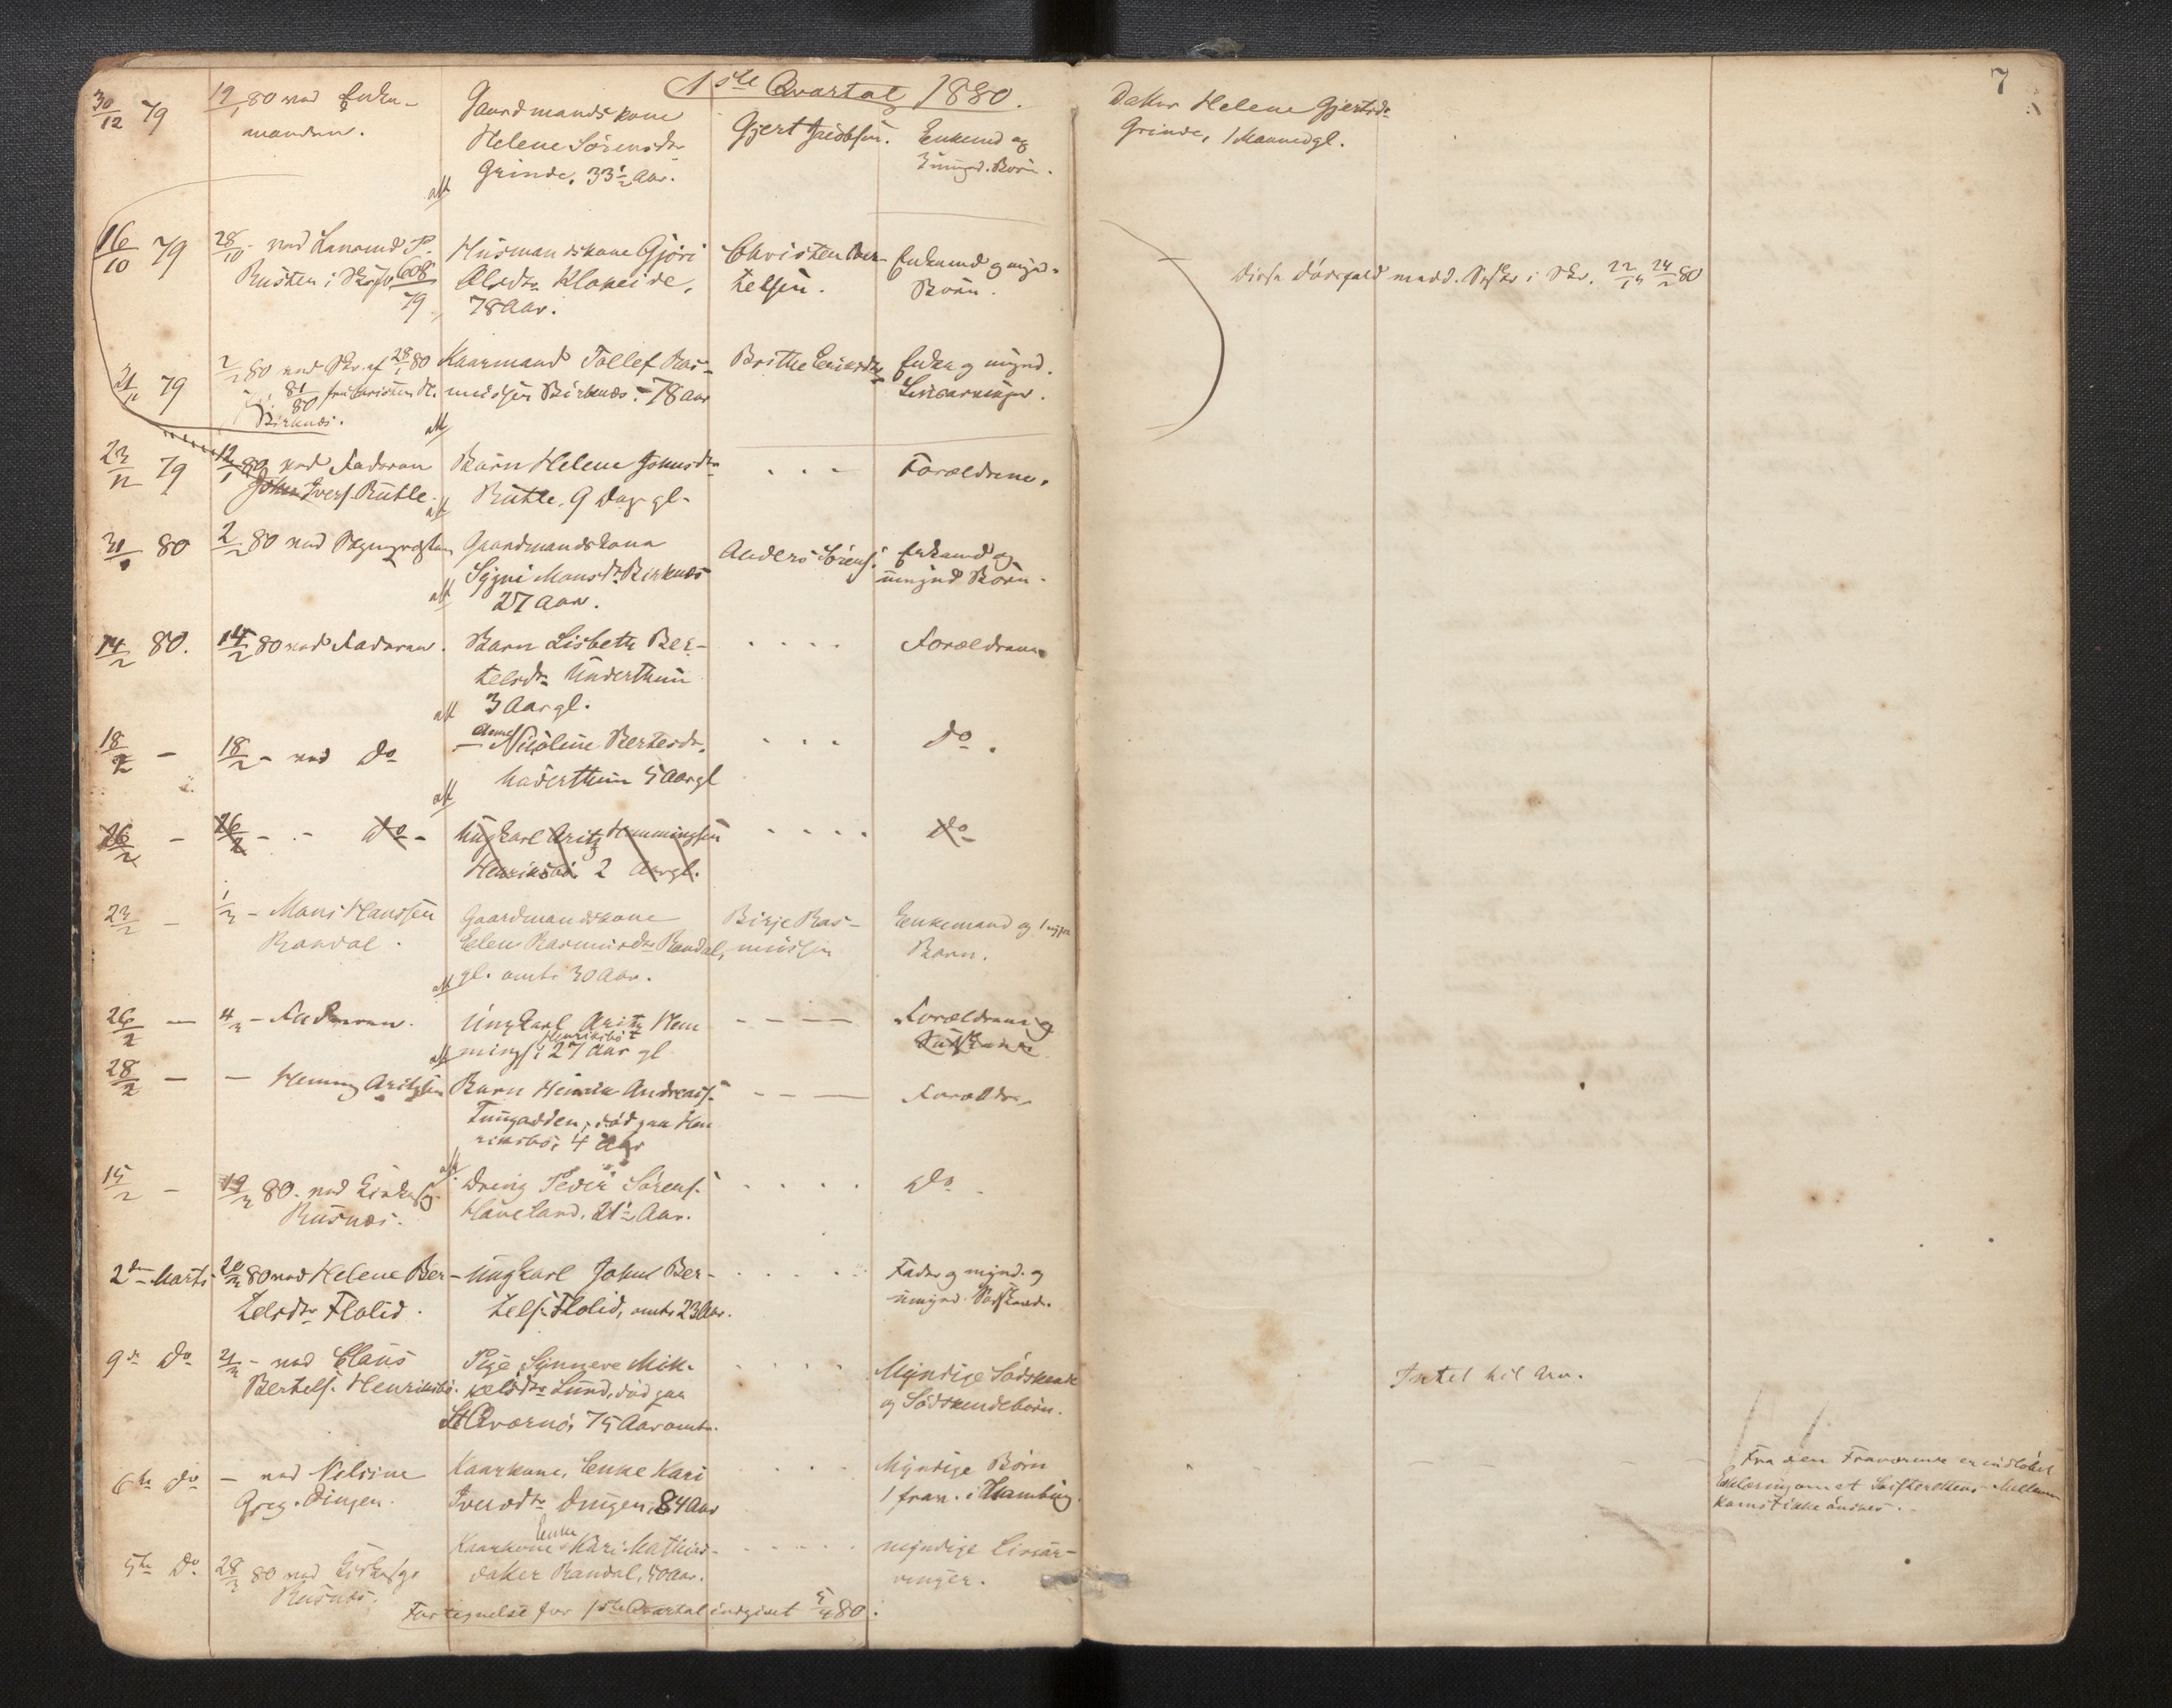 1ste Qvartal 1880.
7
30/12 79
19/1 80 ved Enke-
manden.
Gaardmandskone
Helene Sörensdr
Grinde, 33½ Aar.
Gjert Jacobsen.
Enkemd og
3 umynd. Börn.
Datter Helene Gjertsdr
Grinde, 1 Maaned gl.
16/10 79
28/10 - ved Lensmd P.
Rusten i Skr 608/79
Husmandskone Gjöri
Olsdr Klokeide,
78 Aar.
Christen Ber-
telsen.
Enkemd og mynd.
Börn.
Disse Dödsfald medd. i Skr. 24/2 80
21/11 79
2/2 80 ved Skr. af 28/1 80
81/80 fra
Birknæs.
Kaarmand Tollef Ras-
mussen Birknæs - 78 Aar
Brithe Eriksdr
Enke og mynd.
Livsarvinger.
23/12 79
12/1 80 ved Faderen
John Ivers. Rutle.
Barn Helene Johnsdr
Rutle, 9 Dage gl.
Forældrene.
31/1 80
2/2 80 ved Sognepresten
Gaardmandskone
Sygni Monsdr Birknæs
27 Aar.
Anders Sörens.
Enkemd og
umynd Börn.
14/2 80.
14/2 80 ved Faderen.
Barn Lisbeth Ber-
telsdr Underthun
3 Aar gl.
Forældrene
18/2 -
18/2 - ved Do
- Anne Nicoline Bertelsdr.
Underthun 5 Aar gl
Do.
26/2 -
26/2 - - Do -
Ungkarl Aritz Hemmingsen
Henriksbö. 2 Aar gl.
Do
23/2 -
1/3 - Mons Hanssen
Randal.
Gaardmandskone
Eelen Rasmusdr Randal,
gl. omtr. 30 Aar.
Birje Ras-
mussen
Enkemand og 1
Barn.
26/2 -
4/3 - Faderen.
Ungkarl Aritz Hem
mings. Henriksbö 27 Aar gl
Forældrene og
Södskende
28/2 -
- Heming Aritzsen
Barn Henrik Andreas.
Tungodden, död paa Hen
riksbö, 4 Aar
Forældre
15/2 -
19/3 80. ved Kirkesg.
Risnæs.
Dreng Peder Sörens.
Haveland. 21½ Aar.
Do -
2den Marts
20/3 80 ved Helene Ber-
telsdr Flolid.
Ungkarl Johan Ber-
tels. Flolid, omtr 23 Aar.
Fader og mynd. og
umynd Södskende.
9de Do
21/3 - ved Claus
Bertels. Henriksbö.
Pige Synneve Mik-
kelsdr Lund, död paa
St. Qværnö, 75 Aar omtr.
Myndige Södskende
og Södskendebörn.
Intet til Arv.
6te Do
- ved Nelsine
Greg. Dingen.
Kaarkone, Enke Kari
Iversdr Dingen, 84 Aar
Myndige Börn
1 frav. i Hamburg.
Fra den Fraværende er indlöbet
Erklæring om at Skifterettens Mellem-
komst ikke önskes.
5te Do.
28/3 80 ved Kirkesg.
Risnæs.
Kaarkone Enke Kari Mathias-
datter Randal, 80 Aar.
myndige Livsar-
vinger.
Fortegnelse for 1ste Qvartal indgivet 5/4 80.